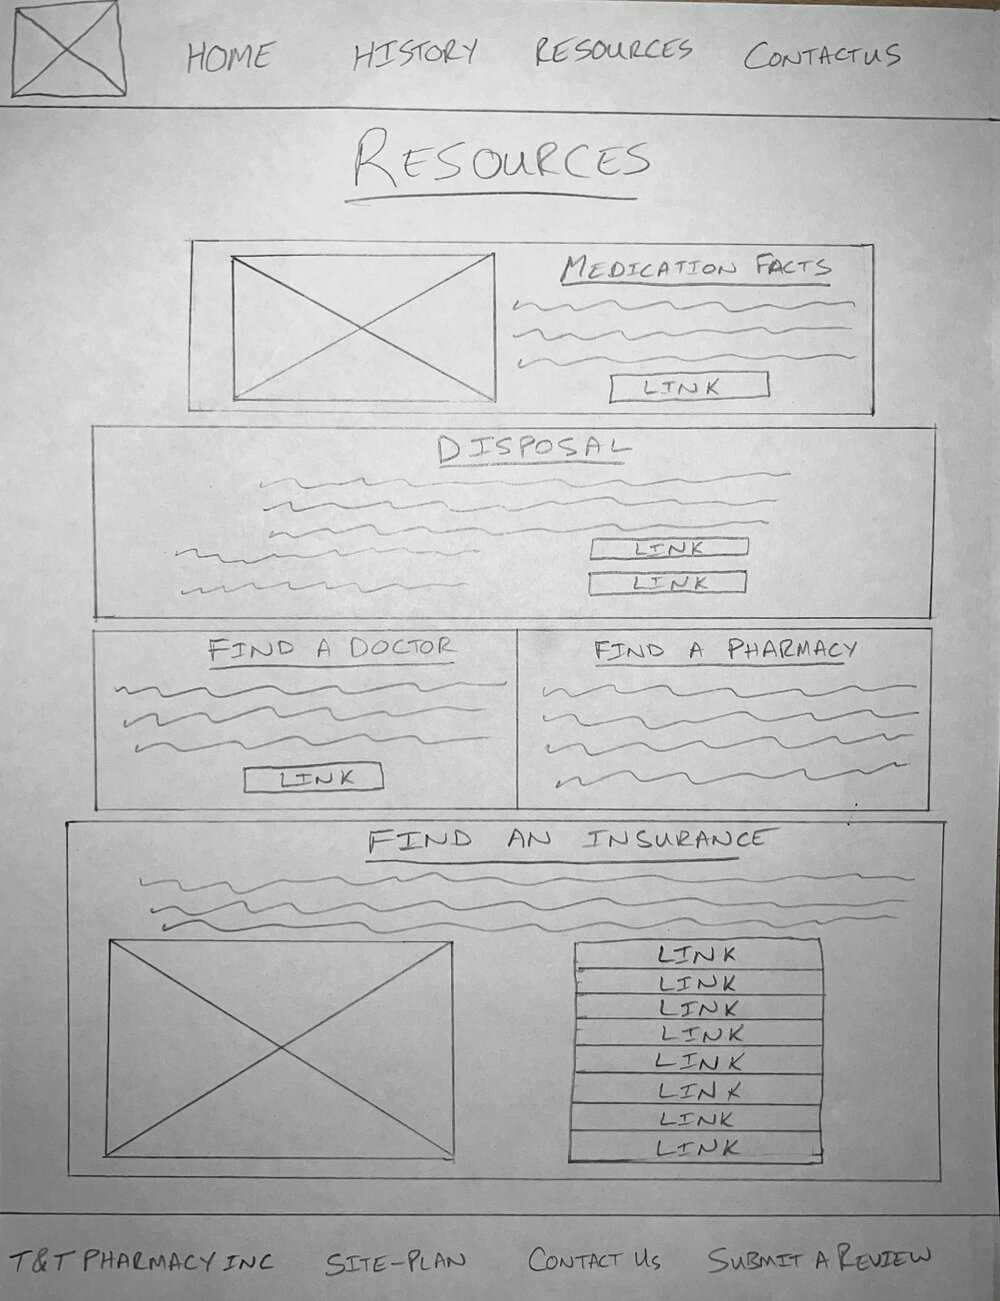 HOME HISTORY RESOURCES CONTACT US
RESOURCES
MEDICATION FACTS
LINK
DISPOSAL
LINK
LINK
FIND A DOCTOR
LINK
FIND A PHARMACY
FIND AN INSURANCE
LINK
LINK
LINK
LINK
LINK
LINK
LINK
LINK
T&T PHARMACY INC SITE-PLAN CONTACT US SUBMIT A REVIEW